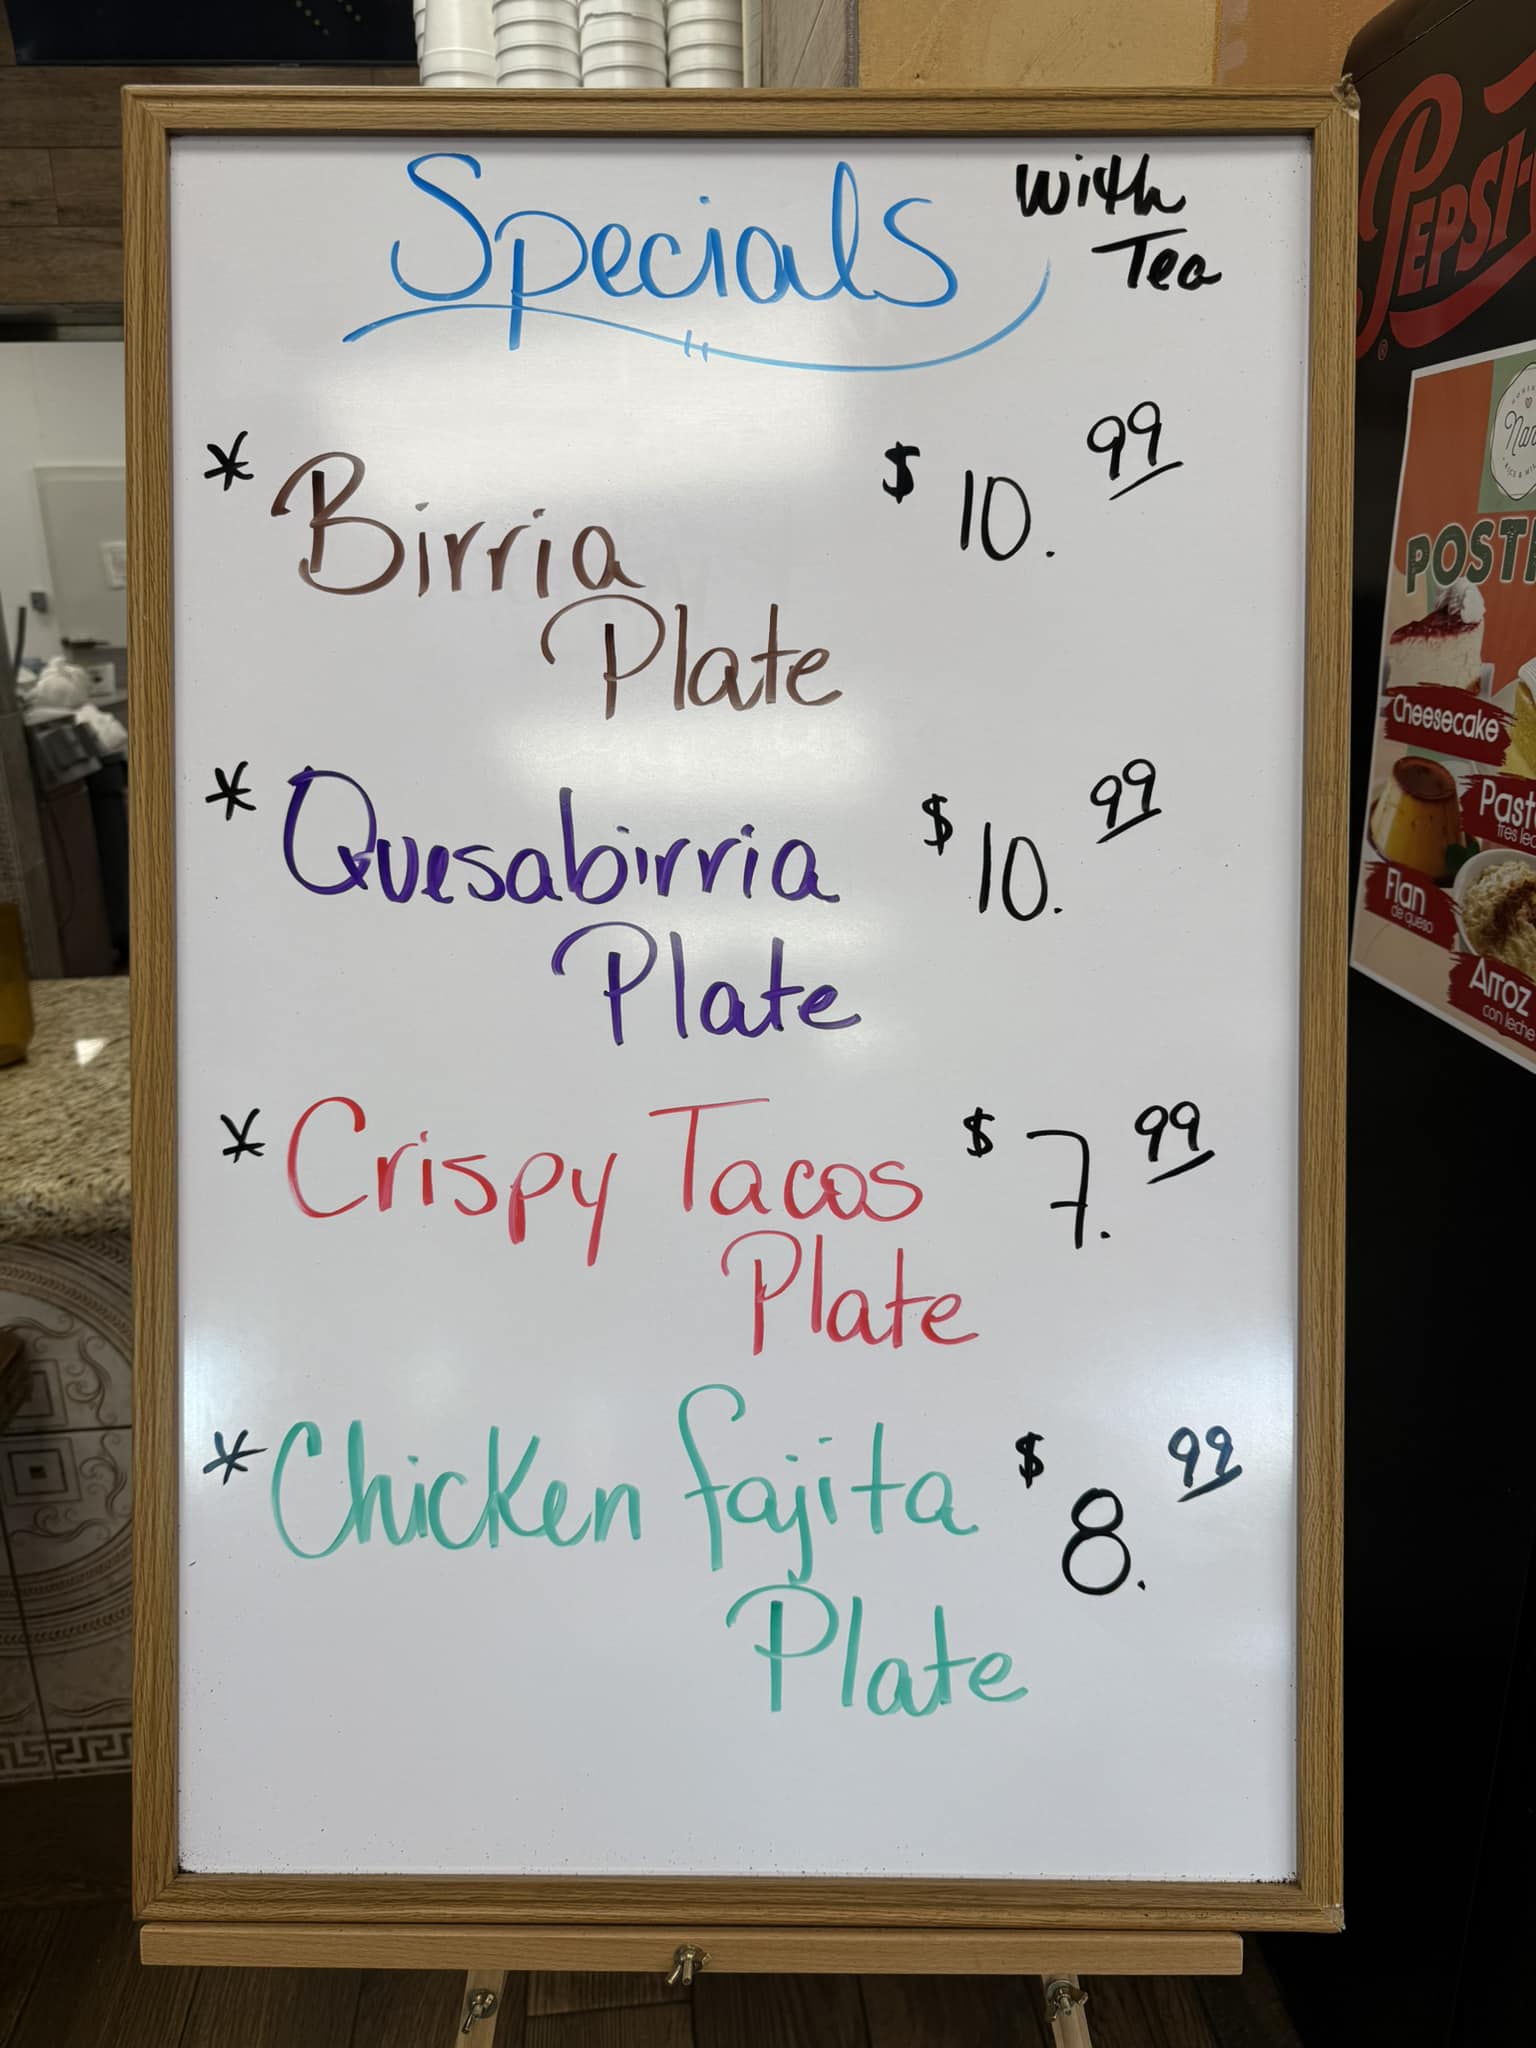 Specials
with
Tea
* Birria $10.99
Plate
* Quesabirria $10.99
Plate
* Crispy Tacos $7.99
Plate
* Chicken fajita $8.99
Plate
PEPSI
®
POST
Cheesecake
Flan
de queso
tres
Arroz
con leche